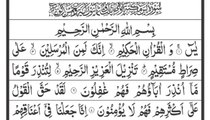 بِسْمِ اللهِ الرَّحْمٰنِ الرَّحِيْمِ
يٰسٓ ۝ وَالْقُرْاٰنِ الْحَكِيْمِ ۝ اِنَّكَ لَمِنَ الْمُرْسَلِيْنَ ۝ عَلٰى
صِرَاطٍ مُّسْتَقِيْمٍ ۝ تَنْزِيْلَ الْعَزِيْزِ الرَّحِيْمِ ۝ لِتُنْذِرَ قَوْمًا
مَّآ اُنْذِرَ اٰبَآؤُهُمْ فَهُمْ غٰفِلُوْنَ ۝ لَقَدْ حَقَّ الْقَوْلُ
عَلٰٓى اَكْثَرِهِمْ فَهُمْ لَا يُؤْمِنُوْنَ ۝ اِنَّا جَعَلْنَا فِيْٓ اَعْنَاقِهِمْ